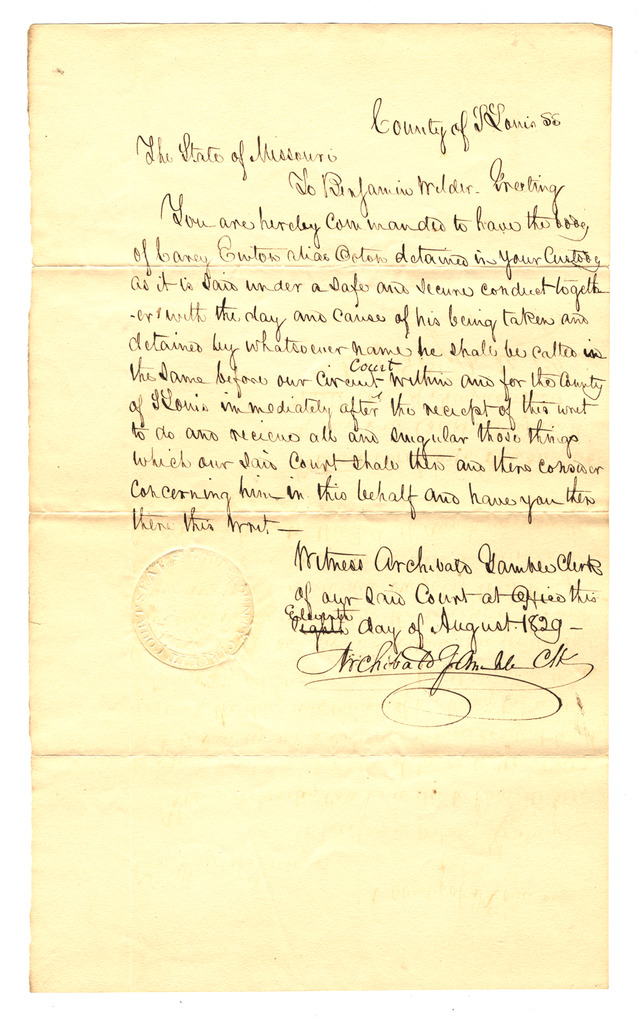 County of St Louis SS
The State of Missouri
To Benjamin Wilder - Greeting
You are hereby Commanded to have the body
of Carey alias detained in your Custody
as it is Said under a Safe and Secure conduct togeth
-er with the day and cause of his being taken and
detained by whatsoever name he shall be called in
the Same before our Circuit Court within and for the County
of St Louis immediately after the reciept of this writ
to do and recieve all and singular those things
which our Said Court shall then and there consider
concerning him in this behalf and have you then
there this writ. —
Witness Archibald Gamble Clerk
of our Said Court at Office this
Eleventh
eighth day of August 1829 —
Archibald Gamble Clk